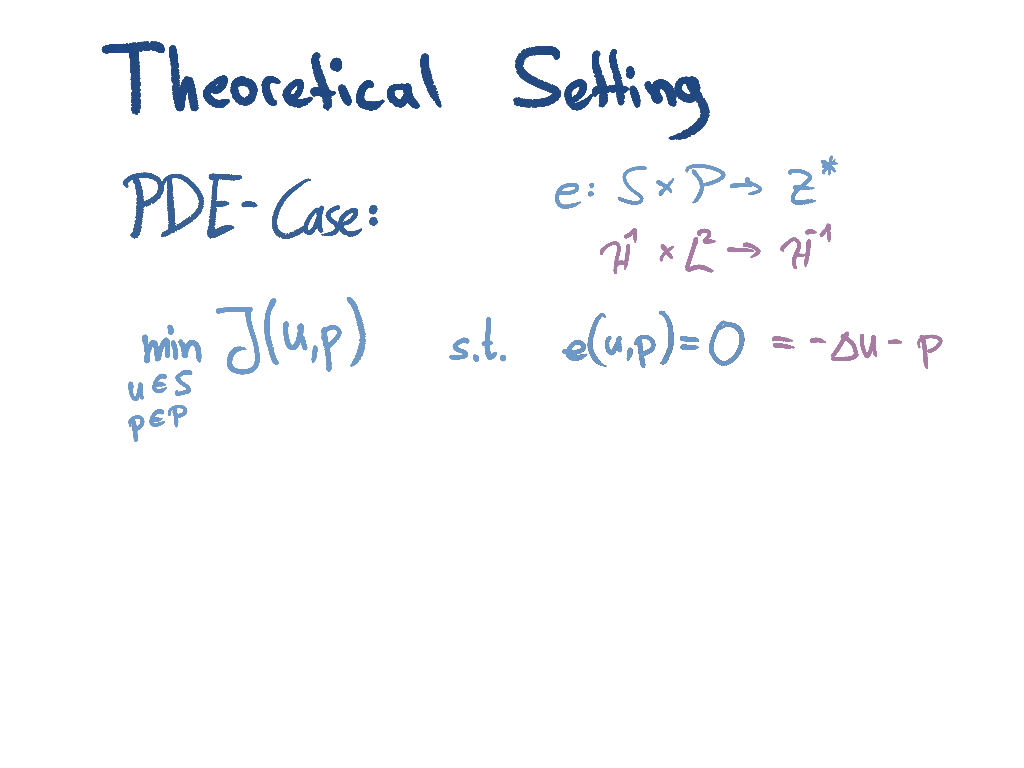 Theoretical Setting
PDE-Case:
e: S × P → Z*
H¹ × L² → H⁻¹
min J(u,p) s.t. e(u,p) = 0 = -Δu - p
u ∈ S
p ∈ P